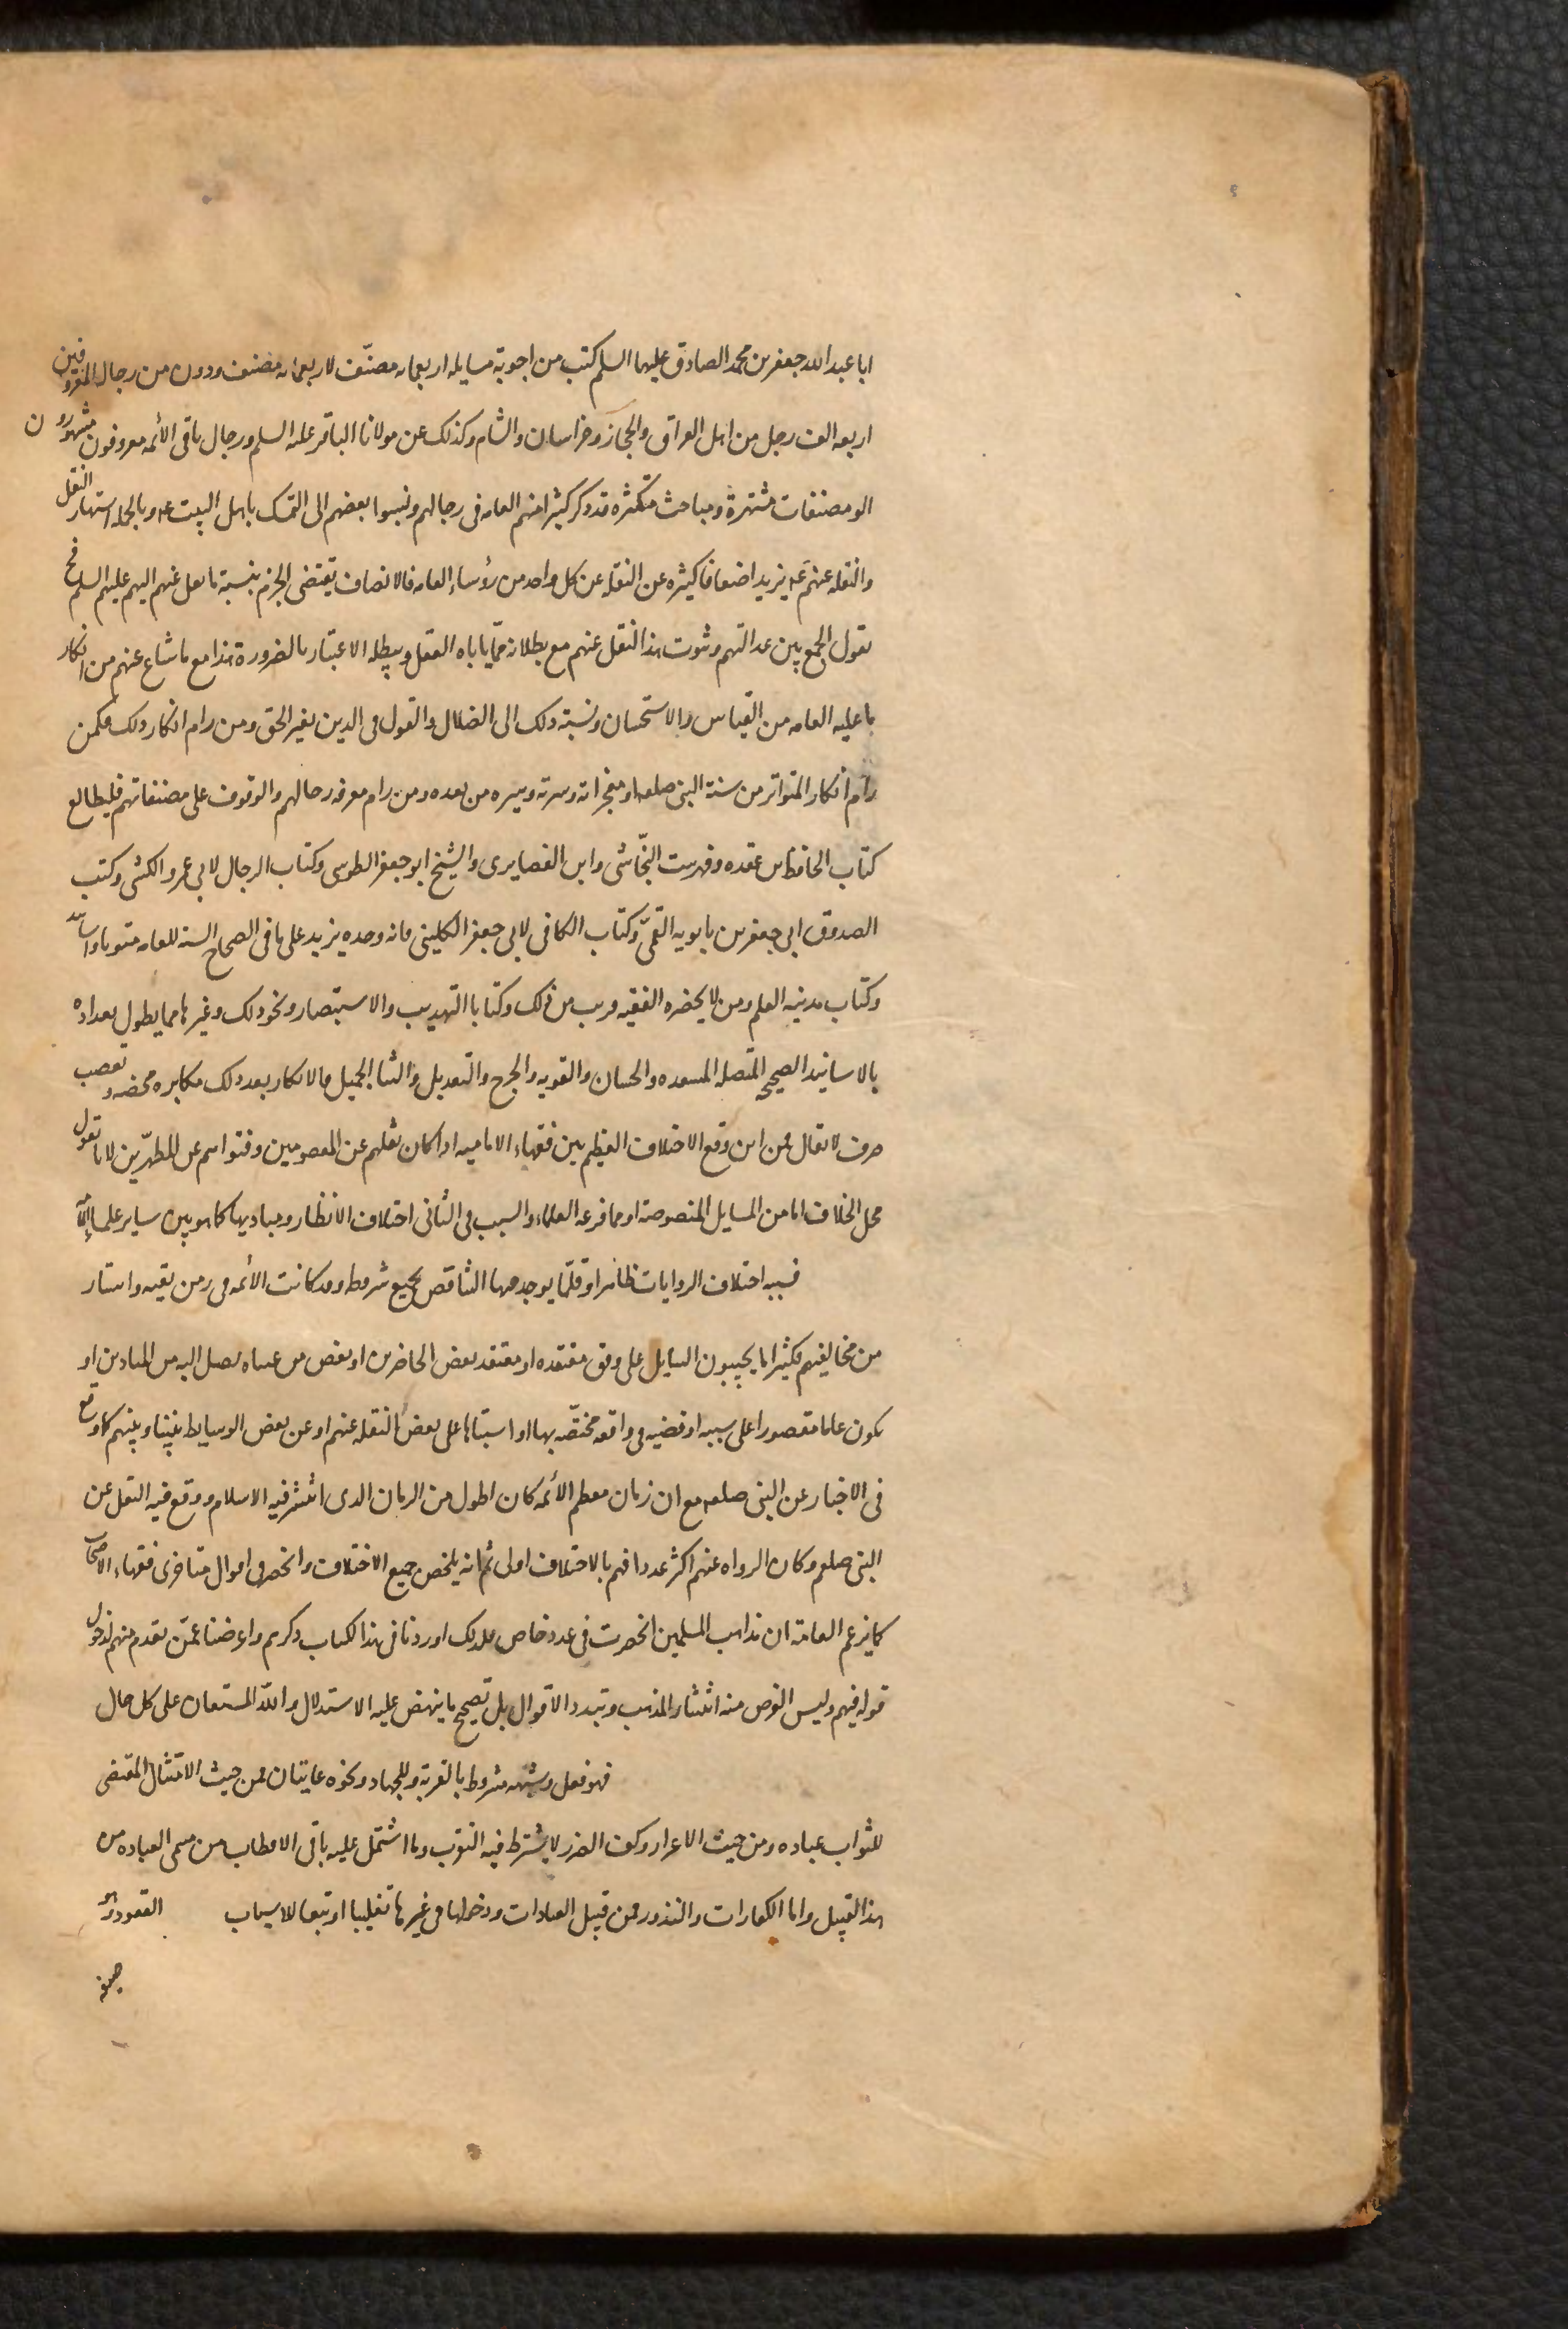 ابا عبد الله جعفر بن محمد الصادق عليهما السلم كتب من اجوبة مسايله اربعماه مصنّف لاربعمائه مصنف ودون من رجال المعروفين
اربعه الف رجل من اهل العراق والحجاز وخراسان والشام وكذلك عن مولانا الباقر عليه السلم ورجال باقى الأئمه معروفون مشهورون
الو مصنفات مشتهرة ومباحث متكثره قد ذكر كثيرا منهم العامه فى رجالهم ونسبوا بعضهم الى التمسك باهل البيت عه وبالجمله اشتهار النقل
والنقله عنهم عه يزيد اضعافا كثيره عن النقله عن كل واحد من رؤساء العامه فالانصاف يقتضى الجزم بنسبة ما نقل عنهم اليهم عليهم السلم فح
نقول الجمع بين عدالتهم وثبوت هذا النقل عنهم مع بطلانه ممّا ياباه العقل ويبطله الاعتبار بالضرورة هذا مع ما شاع عنهم من انكار
ما عليه العامه من القياس والاستحسان ونسبة ذلك الى الضلال والقول فى الدين بغير الحق ومن رام انكار ذلك فكمن
رام انكار المتواتر من سنة النبى صلعم او معجزاته وسيرته وسيره من بعده ومن رام معرفه رجالهم والوقوف على مصنفاتهم فليطالع
كتاب الحافظ بن عقده وفهرست النجّاشى وابن الغضايرى والشيخ ابو جعفر الطوسى وكتاب الرجال لابى عمرو الكشى وكتب
الصدوق ابى جعفر بن بابويه القمىّ وكتاب الكافى لابى جعفر الكلينى فانه وحده يزيد على ما فى الصحاح السته للعامه متونا واسانيد
وكتاب مدينه العلم ومن لا يحضره الفقيه قريب من ذلك وكتابا التهذيب والاستبصار ونحو ذلك وغيرها مما يطول تعداده
بالاسانيد الصحيحه المتصله المنتقده والحسان والقويه والجرح والتعديل والثنا الجميل فالانكار بعد ذلك مكابره محضه وتعصب
صرف لا يقال فمن اين وقع الاختلاف العظيم بين فقهاء الاماميه اذا كان نقلهم عن المعصومين وفتواهم عن المطهّرين لانا نقول
محل الخلاف اما من المسايل المنصوصة او مما فرعه العلماء والسبب فى الثانى اختلاف الانظار ومباديها كما هو بين ساير علماء الأمّة
فسببه اختلاف الروايات ظاهرا وقلّما يوجد فيها التناقض بجميع شروطه وقد كانت الأئمه فى زمن تقيه واستتار
من مخالفيهم فكثيرا ما يجيبون السايل على وفق معتقده او معتقد بعض الحاضرين او بعض من عساه يصل اليه من المنادين او
يكون عاما مقصورا على سببه او قضيه فى واقعه مختصّه بها او اشتباها على بعض النقله عنهم او عن بعض الوسايط بيننا وبينهم كما وقع
فى الاخبار عن النبى صلعم مع ان زمان معظم الأئمه كان اطول من الزمان الذى انتشر فيه الاسلام ووقع فيه النقل عن
النبى صلعم وكان الرواه عنهم اكثر عددا فهم بالاختلاف اولى ثم انه يلخص جميع الاختلاف وانحصر فى اقوال متاخرى فقهاء الاصحاب
كما يزعم العامّة ان مذاهب المسلمين انحصرت فى عدد خاص فلذلك اوردنا فى هذا الكتاب ذكرهم واعرضنا عمّن تقدم منهم لدخول
قوله فيهم وليس الغرض منه انتشار المذهب وتبدد الاقوال بل تصحيح ما ينهض عليه الاستدلال والله المستعان على كل حال
فهو فعل وشبهه مشروط بالقربة وللجهاد ونحوه غايتان فمن حيث الامتثال المقتضى
للثواب عباده ومن حيث الاعزاز وكف الضرر لا يشترط فيه التقرب وما اشتمل عليه باقى الاقطاب من مسمى العباده من
هذا القبيل واما الكفارات والنذور فمن قبيل العبادات ودخولها فى غيرها تغليبا او تبعا للاسباب العقود وهو
صيغه